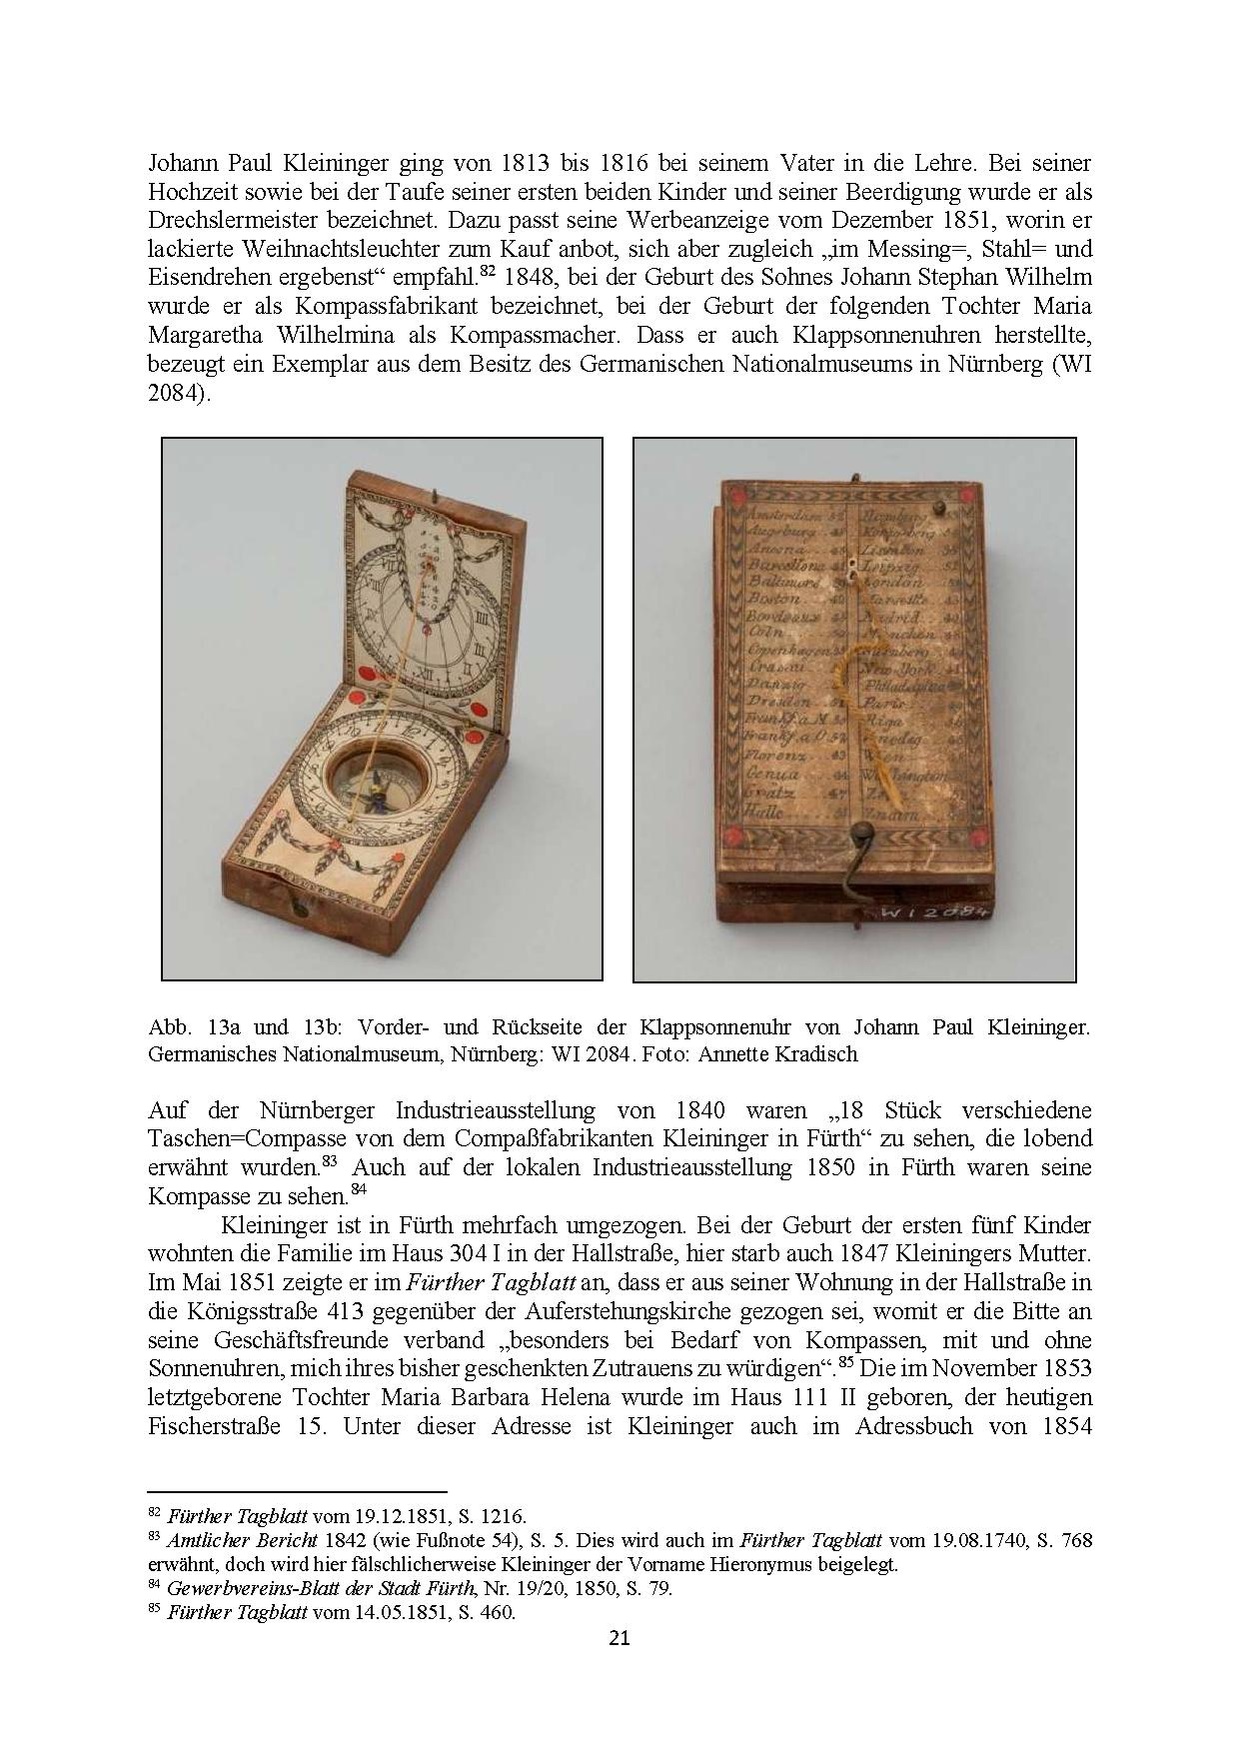 Johann Paul Kleininger ging von 1813 bis 1816 bei seinem Vater in die Lehre. Bei seiner
Hochzeit sowie bei der Taufe seiner ersten beiden Kinder und seiner Beerdigung wurde er als
Drechslermeister bezeichnet. Dazu passt seine Werbeanzeige vom Dezember 1851, worin er
lackierte Weihnachtsleuchter zum Kauf anbot, sich aber zugleich „im Messing=, Stahl= und
Eisendrehen ergebenst“ empfahl.82 1848, bei der Geburt des Sohnes Johann Stephan Wilhelm
wurde er als Kompassfabrikant bezeichnet, bei der Geburt der folgenden Tochter Maria
Margaretha Wilhelmina als Kompassmacher. Dass er auch Klappsonnenuhren herstellte,
bezeugt ein Exemplar aus dem Besitz des Germanischen Nationalmuseums in Nürnberg (WI
2084).
Amsterdam 52
Augsburg
Ancona
Barcellona
Baltimore
Boston
Bordeaux
Cöln
Copenhagen
Cracau
Danzig
Dresden
Frankf. a M
Frankf. a O 52
Florenz 43
Genua 44
Grätz 47
Halle 51
Hamburg
Königsberg
Lissabon
Leipzig 51
London
Marseille
Madrid
München
Nürnberg
New-York
Philadelphia
Paris
Riga
Venedig
Wien
Washington
Znaim
WI 2084
Abb. 13a und 13b: Vorder- und Rückseite der Klappsonnenuhr von Johann Paul Kleininger.
Germanisches Nationalmuseum, Nürnberg: WI 2084. Foto: Annette Kradisch
Auf der Nürnberger Industrieausstellung von 1840 waren „18 Stück verschiedene
Taschen=Compasse von dem Compaßfabrikanten Kleininger in Fürth“ zu sehen, die lobend
erwähnt wurden.83 Auch auf der lokalen Industrieausstellung 1850 in Fürth waren seine
Kompasse zu sehen.84
Kleininger ist in Fürth mehrfach umgezogen. Bei der Geburt der ersten fünf Kinder
wohnten die Familie im Haus 304 I in der Hallstraße, hier starb auch 1847 Kleiningers Mutter.
Im Mai 1851 zeigte er im Fürther Tagblatt an, dass er aus seiner Wohnung in der Hallstraße in
die Königsstraße 413 gegenüber der Auferstehungskirche gezogen sei, womit er die Bitte an
seine Geschäftsfreunde verband „besonders bei Bedarf von Kompassen, mit und ohne
Sonnenuhren, mich ihres bisher geschenkten Zutrauens zu würdigen“.85 Die im November 1853
letztgeborene Tochter Maria Barbara Helena wurde im Haus 111 II geboren, der heutigen
Fischerstraße 15. Unter dieser Adresse ist Kleininger auch im Adressbuch von 1854
82 Fürther Tagblatt vom 19.12.1851, S. 1216.
83 Amtlicher Bericht 1842 (wie Fußnote 54), S. 5. Dies wird auch im Fürther Tagblatt vom 19.08.1740, S. 768
erwähnt, doch wird hier fälschlicherweise Kleininger der Vorname Hieronymus beigelegt.
84 Gewerbvereins-Blatt der Stadt Fürth, Nr. 19/20, 1850, S. 79.
85 Fürther Tagblatt vom 14.05.1851, S. 460.
21